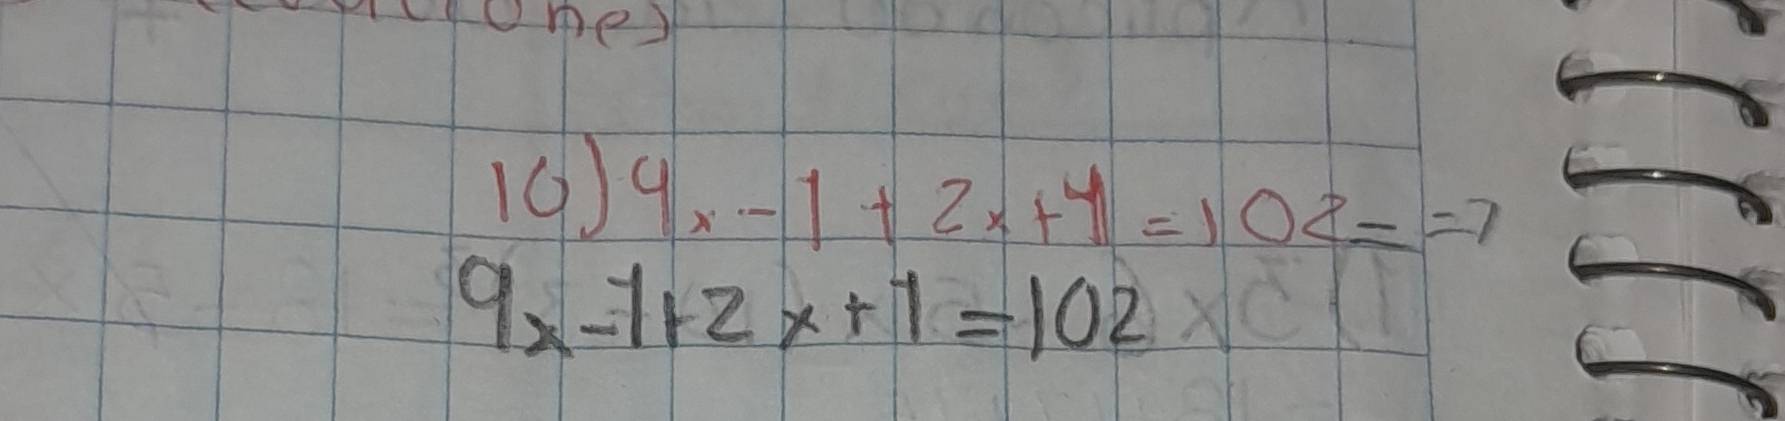 10) 9x - 1 + 2x + 1 = 102 - =7
9x - 1 + 2x + 1 = 102